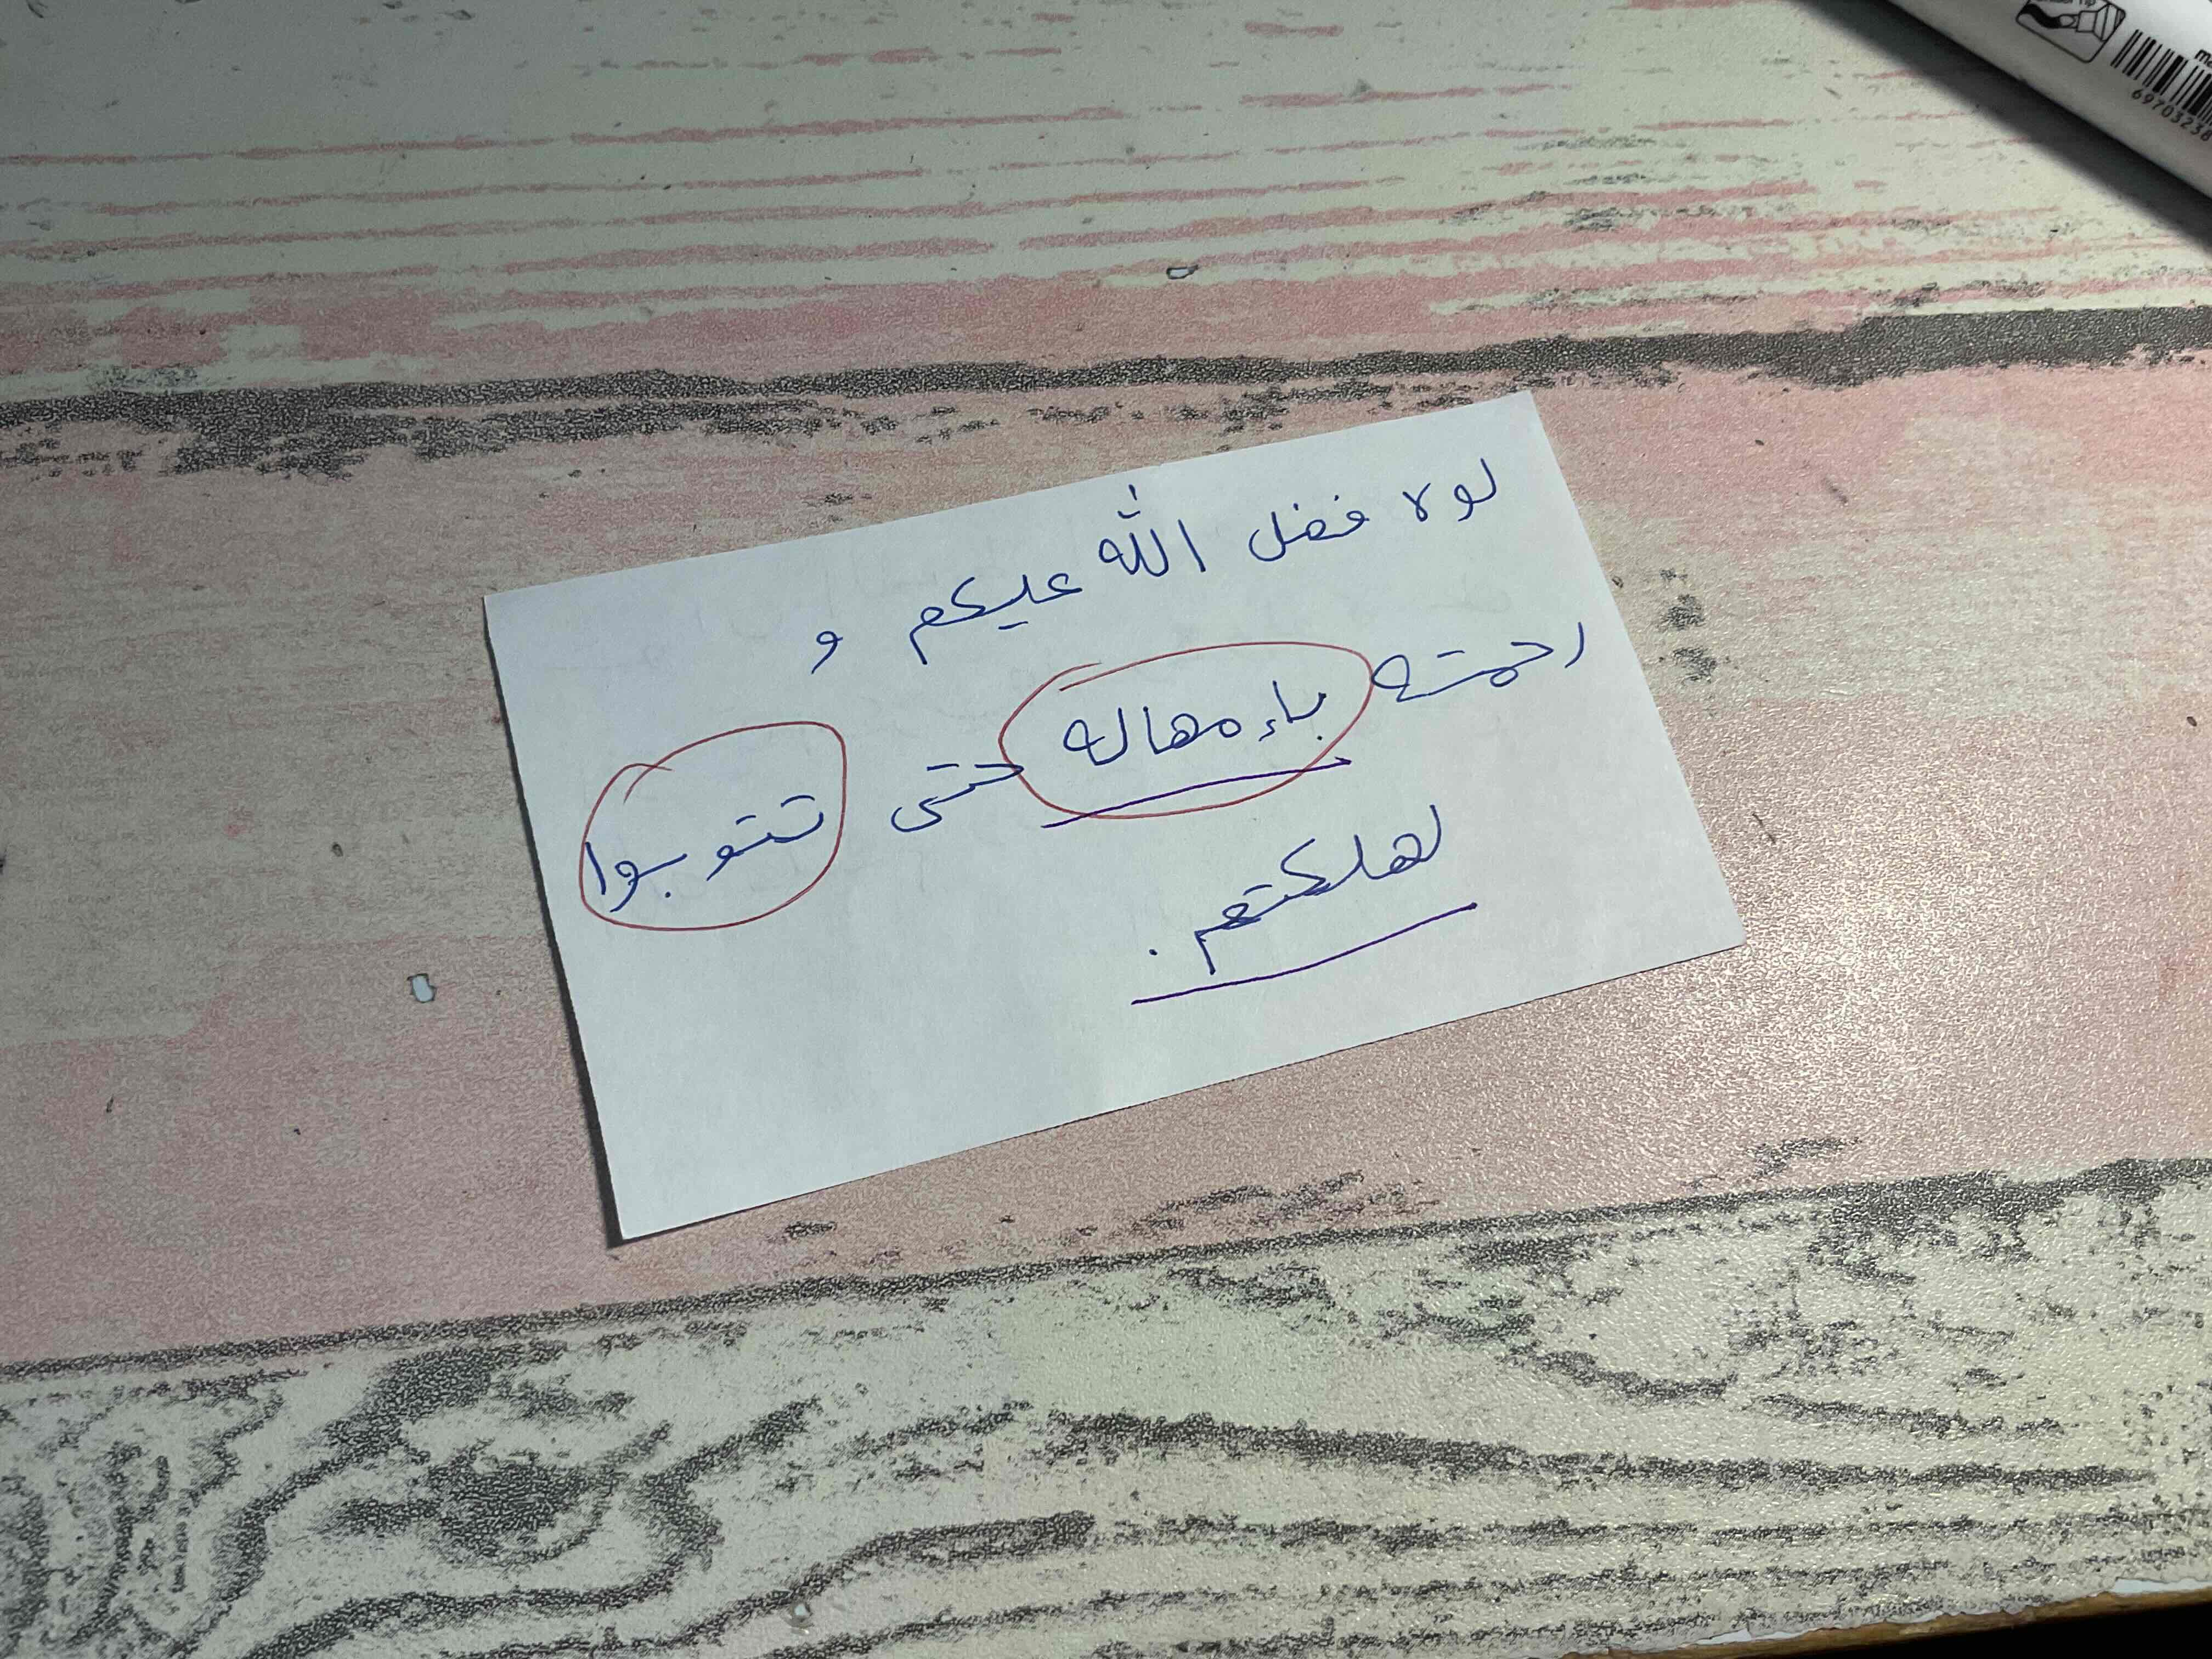 لولا فضل الله عليكم و
رحمته باءمهاله حتى تتوبوا
لهلكتم.